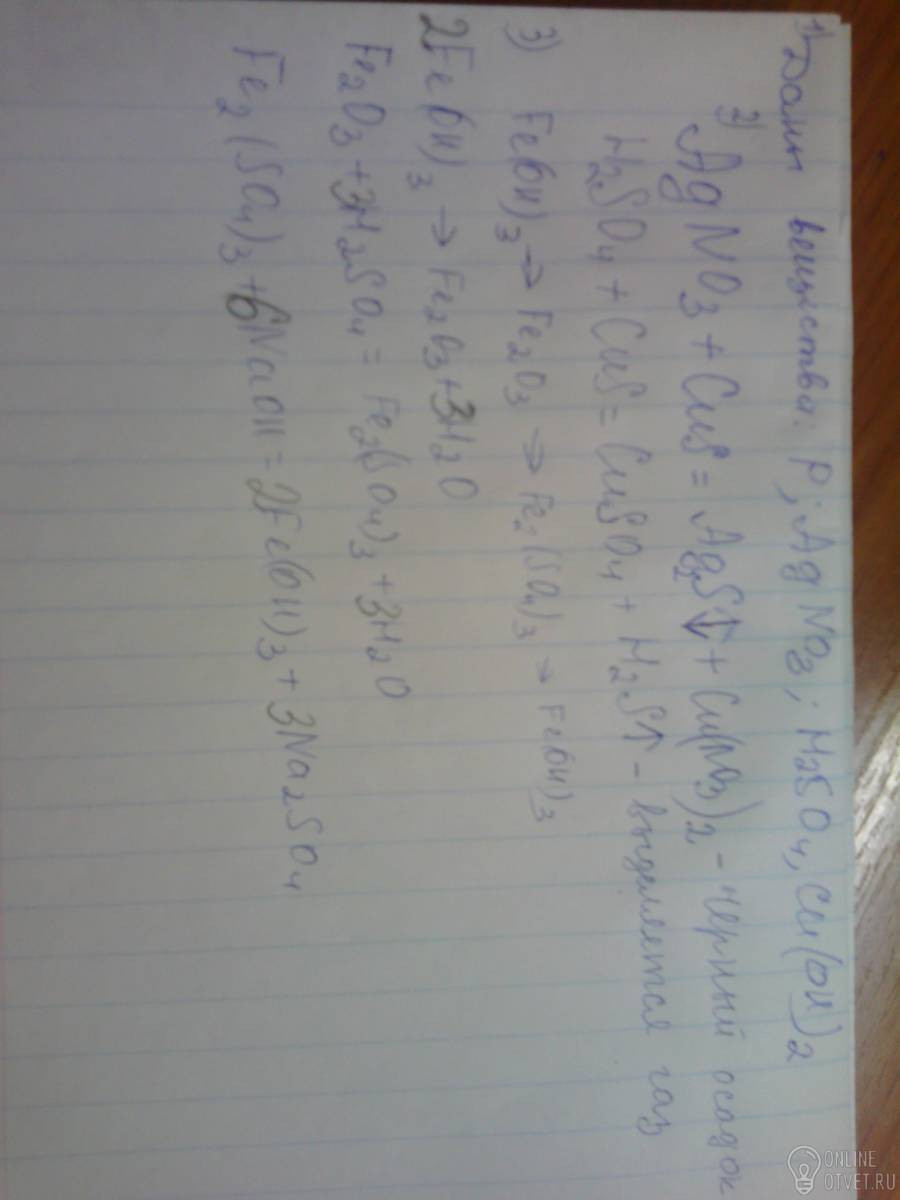 1) Даны вещества: P; AgNO3; H2SO4, Cu(OH)2
2) AgNO3 + CuS = Ag2S↓ + Cu(NO3)2 - черный осадок
H2SO4 + CuS = CuSO4 + H2S↑ - выделяется газ
3) Fe(OH)3 → Fe2O3 → Fe2(SO4)3 → Fe(OH)3
2Fe(OH)3 → Fe2O3 + 3H2O
Fe2O3 + 3H2SO4 = Fe2(SO4)3 + 3H2O
Fe2(SO4)3 + 6NaOH = 2Fe(OH)3 + 3Na2SO4
ONLINE
OTVET.RU